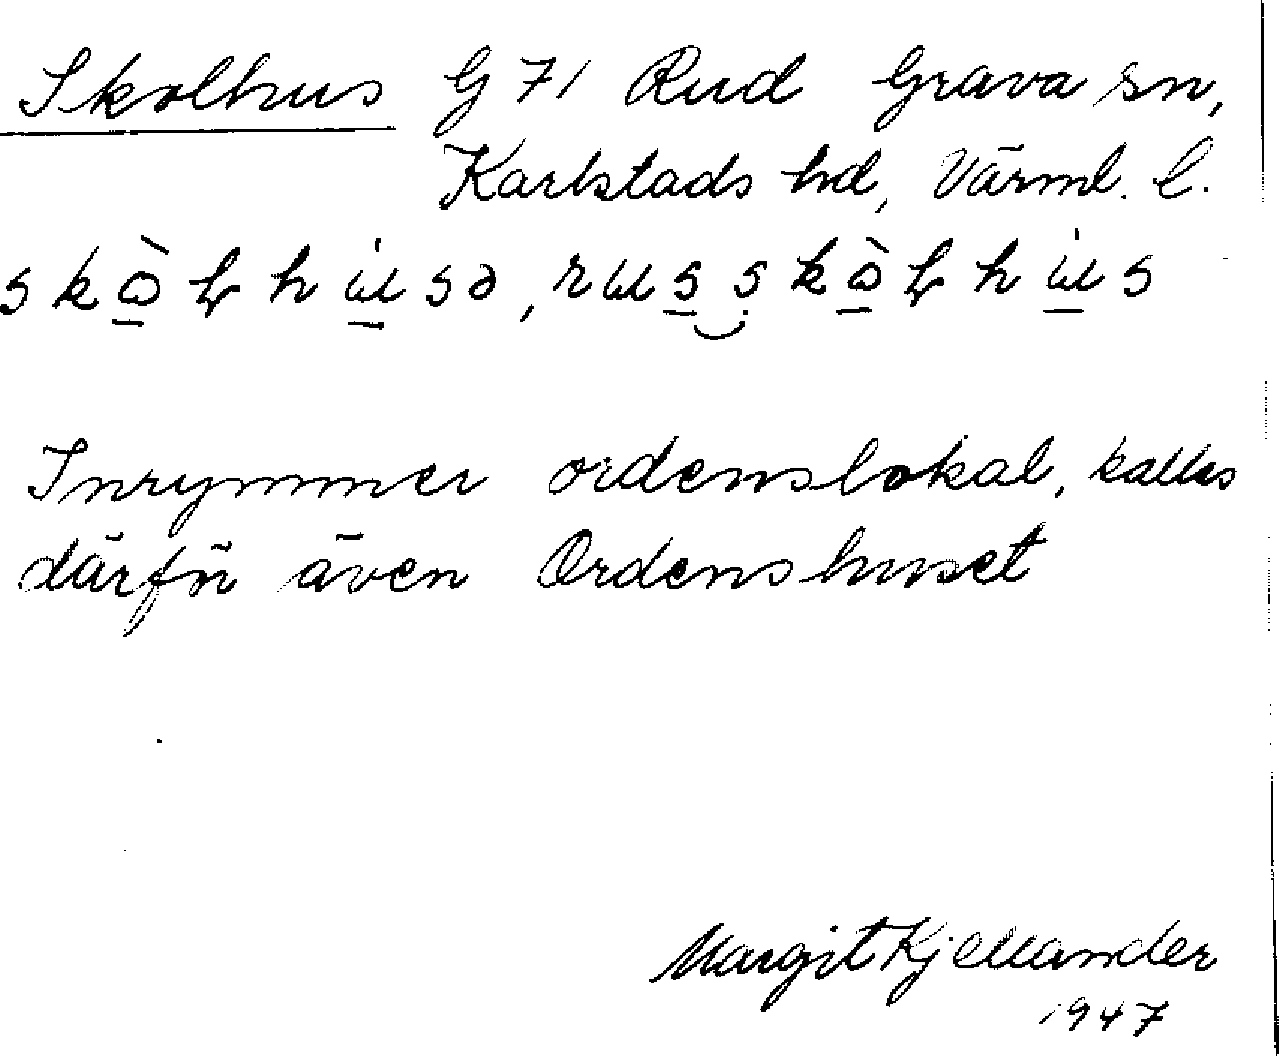 Skolhus G 71 Rud Grava sn,
Karlstads hd, Värml. l.
Inrymmer ordenslokal, kallas
därför även Ordenshuset
Margit Kjellander
1947